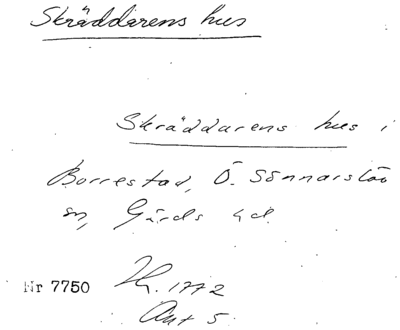 Skräddarens hus
Skräddarens hus i
Borrestad, Ö. Sönnarslöv
sn, Gärds hd.
Nr 7750
1772